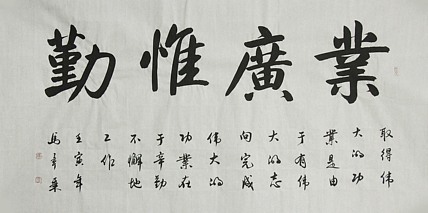 業廣惟勤
取得伟
大的功
業是由
于有伟
大的志
向完成
伟大的
功業在
于辛勤
不懈地
工作
壬寅年
馬